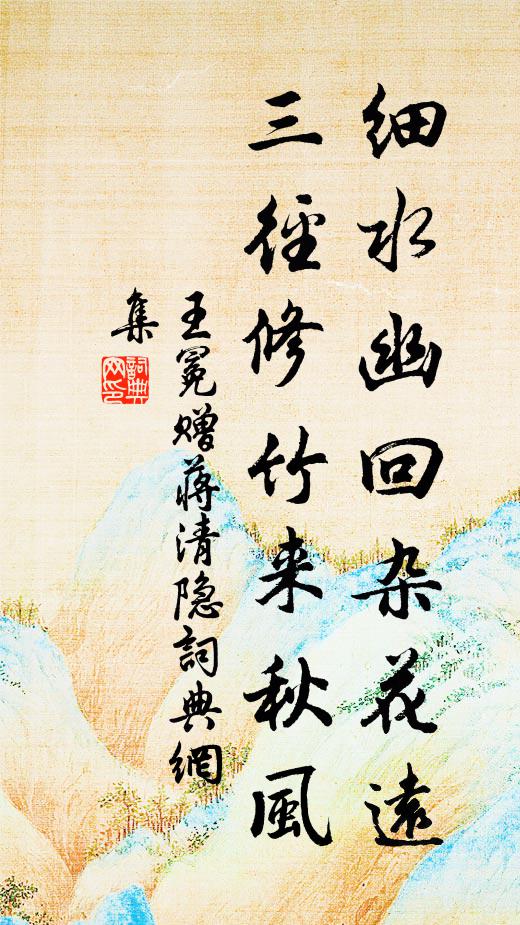 细水幽回杂花遠
三径修竹来秋風
王冕赠蒋清隐詞典網
集
詞典网印